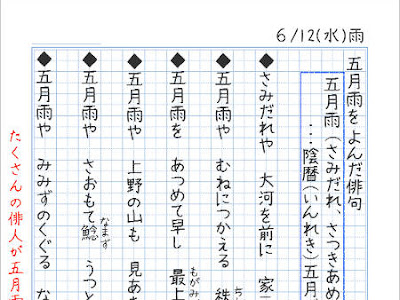 6/12(水)雨
五月雨をよんだ俳句
五月雨(さみだれ、さつきあめ
…陰暦(いんれき)五月
◆さみだれや 大河を前に 家
◆五月雨や むねにつかえる 秩
ち
◆五月雨を あつめて早し 最上
もがみ
◆五月雨や 上野の山も 見あ
◆五月雨や さおもて鯰 うつ
なまず
◆五月雨や みみずのくぐる な
たくさんの俳人が五月雨